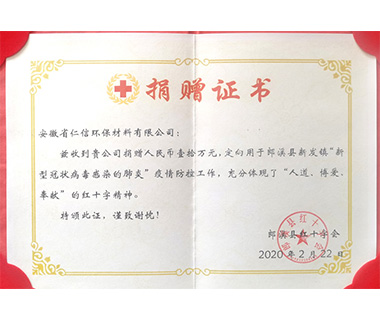 捐赠证书
安徽省仁信环保材料有限公司：
兹收到贵公司捐赠人民币壹拾万元，定向用于郎溪县新发镇“新
型冠状病毒感染的肺炎”疫情防控工作，充分体现了“人道、博爱、
奉献”的红十字精神。
特颁此证，谨致谢忱！
郎溪县红十字会
2020年2月22日